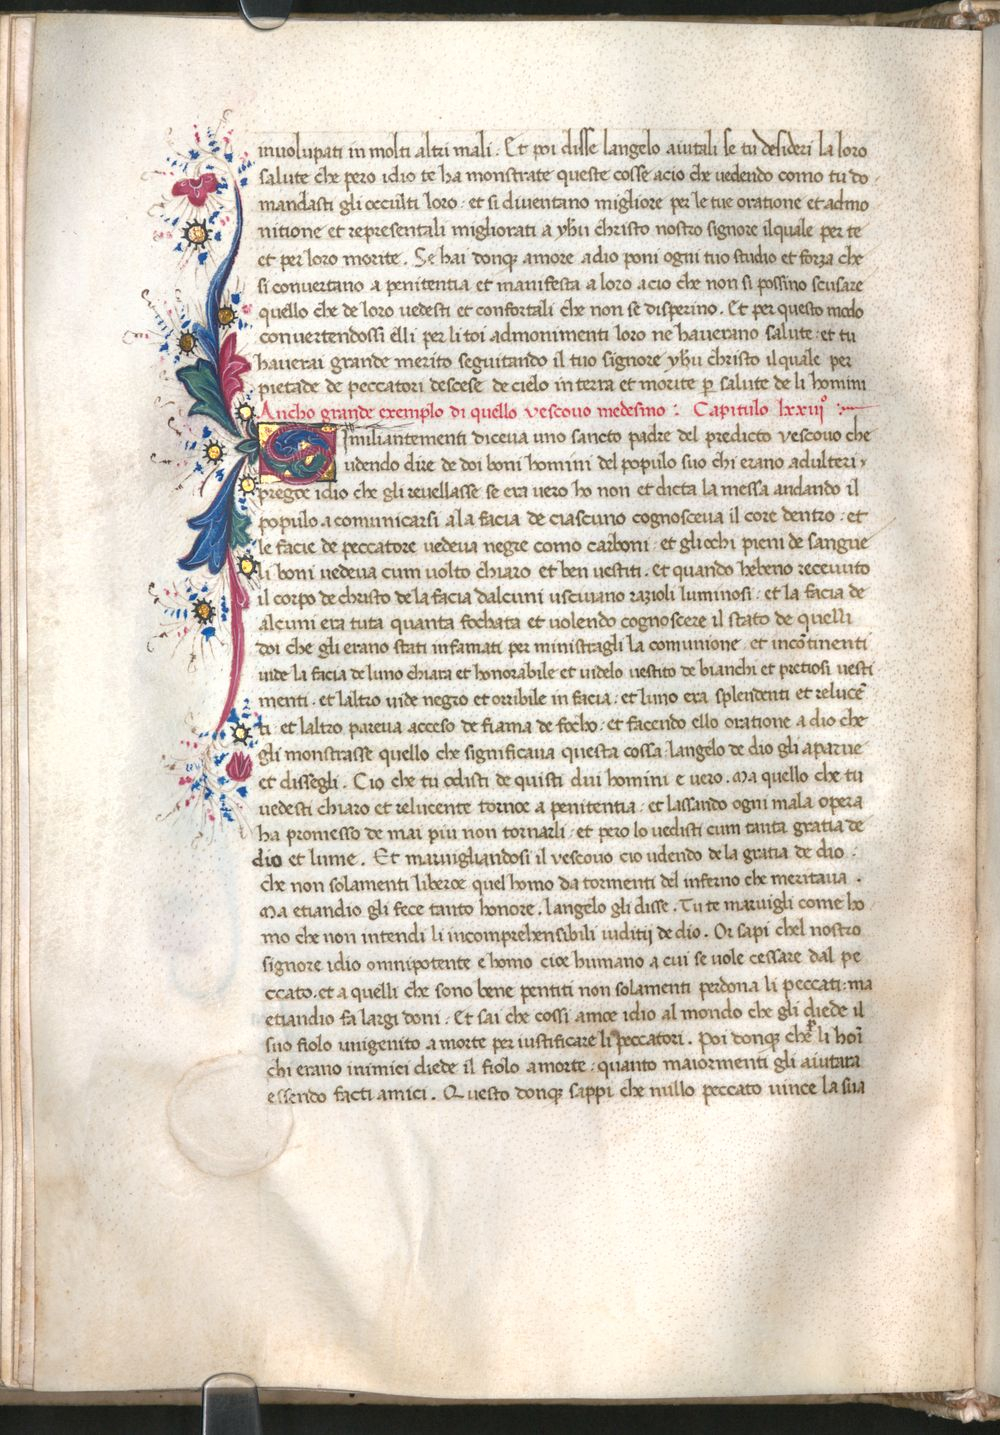 inuolupati in molti altri mali. Et poi disse langelo aiutali se tu desideri la loro
salute che pero idio te ha monstrate queste cosse acio che uedendo como tu do
mandasti gli occulti loro et si diuentano migliore per le tue oratione et admo
nitione et representali migliorati a yhu christo nostro signore il quale per te
et per loro morite. Se hai donqꝫ amore a dio poni ogni tuo studio et forza che
si conuertano a penitentia et manifesta a loro acio che non si possino scusare
quello che de loro uedesti et confortali che non se disperino. Et per questo modo
conuertendossi elli per li toi admonimenti loro ne hauerano salute et tu
hauerai grande merito seguitando il tuo signore yhu christo il quale per
pietade de peccatori descese de cielo in terra et morite ꝑ salute de li homini
Ancho grande exemplo di quello vescouo medesmo: Capitulo lxxiijº
Similiantementi diceua uno sancto padre del predicto vescouo che
udendo dire de doi boni homini del populo suo chi erano adulteri
pregoe idio che gli reuellasse se era uero ho non et dicta la messa andando il
populo a comunicarsi a la facia de ciascuno cognosceua il core dentro: et
le facie de peccatore uedeua negre como carboni et gliochi pieni de sangue
li boni uedeua cum uolto chiaro et ben uestiti. et quando hebeno receuuto
il corpo de christo de la facia dalcuni usciuano razioli luminosi: et la facia de
alcuni era tuta quanta fochata et uolendo cognoscere il stato de quelli
doi che gli erano stati infamati per ministragli la comunione et incōtinenti
uide la facia de luno chiara et honorabile et uidelo uestito de bianchi et pretiosi uesti
menti. et laltro uide negro et orribile in facia. et luno era splendenti et relucē
ti. et laltro pareua acceso de fiama de focho. et facendo ello oratione a dio che
gli monstrasse quello che significaua questa cossa. langelo de dio gli aparue
et dissegli. Cio che tu odisti de quisti dui homini e uero. Ma quello che tu
uedesti chiaro et relucente tornoe a penitentia. et lassando ogni mala opera
ha promesso de mai piu non tornarli. et pero lo uedisti cum tanta gratia de
dio et lume. Et maruigliandosi il vescouo cio udendo de la gratia de dio.
che non solamenti liberoe quel homo da tormenti del inferno che meritaua.
Ma etiandio gli fece tanto honore. langelo gli disse. Tu te maruigli come ho
mo che non intendi li incomprehensibili iuditij de dio. Or sapi chel nostro
signore idio omnipotente e homo cioe humano a cui se uole cessare dal pe
ccato. et a quelli che sono bene pentiti non solamenti perdona li peccati: ma
etiandio fa largi doni. Et sai che cossi amoe idio al mondo che gli diede il
suo fiolo unigenito a morte per iustificare li peccatori. Poi donqꝫ che ꝑ li hoī
chi erano inimici diede il fiolo a morte: quanto maiormenti gli aiutara
essendo facti amici. Questo donqꝫ sappi che nullo peccato uince la sua